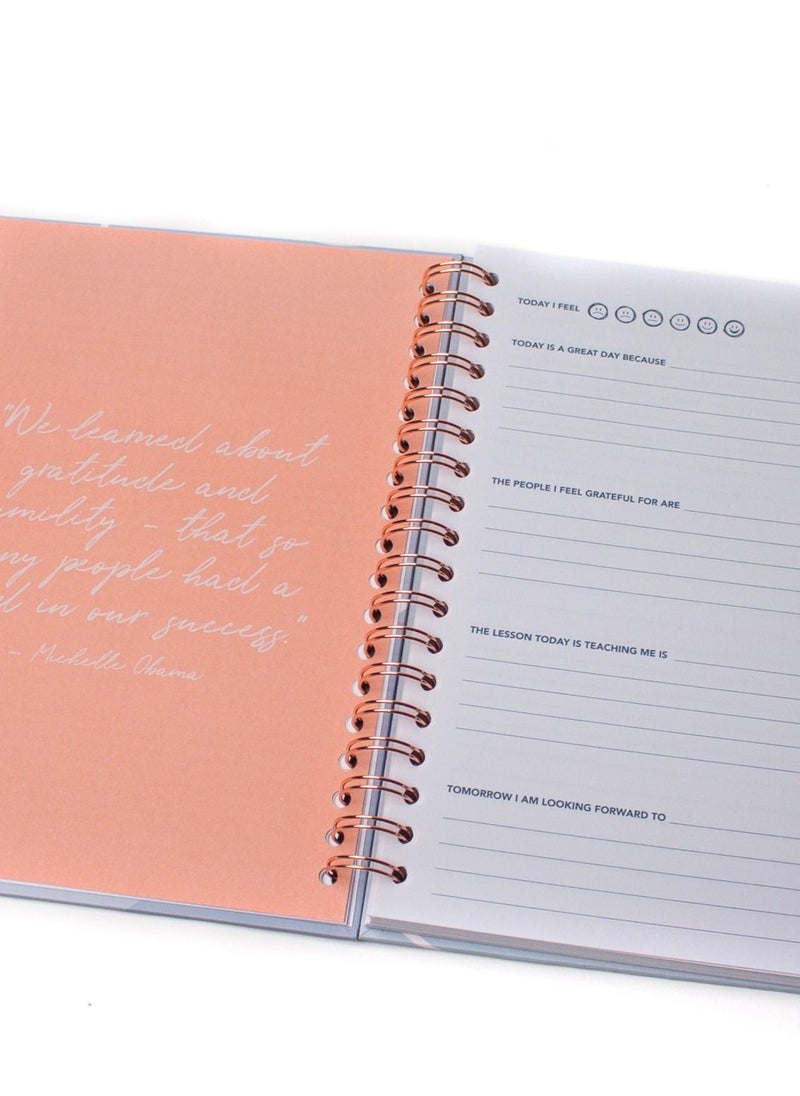 "We learned about
gratitude and
mility - that so
ny people had a
d in our success."
- Michelle Obama
TODAY I FEEL
TODAY IS A GREAT DAY BECAUSE
THE PEOPLE I FEEL GRATEFUL FOR ARE
THE LESSON TODAY IS TEACHING ME IS
TOMORROW I AM LOOKING FORWARD TO